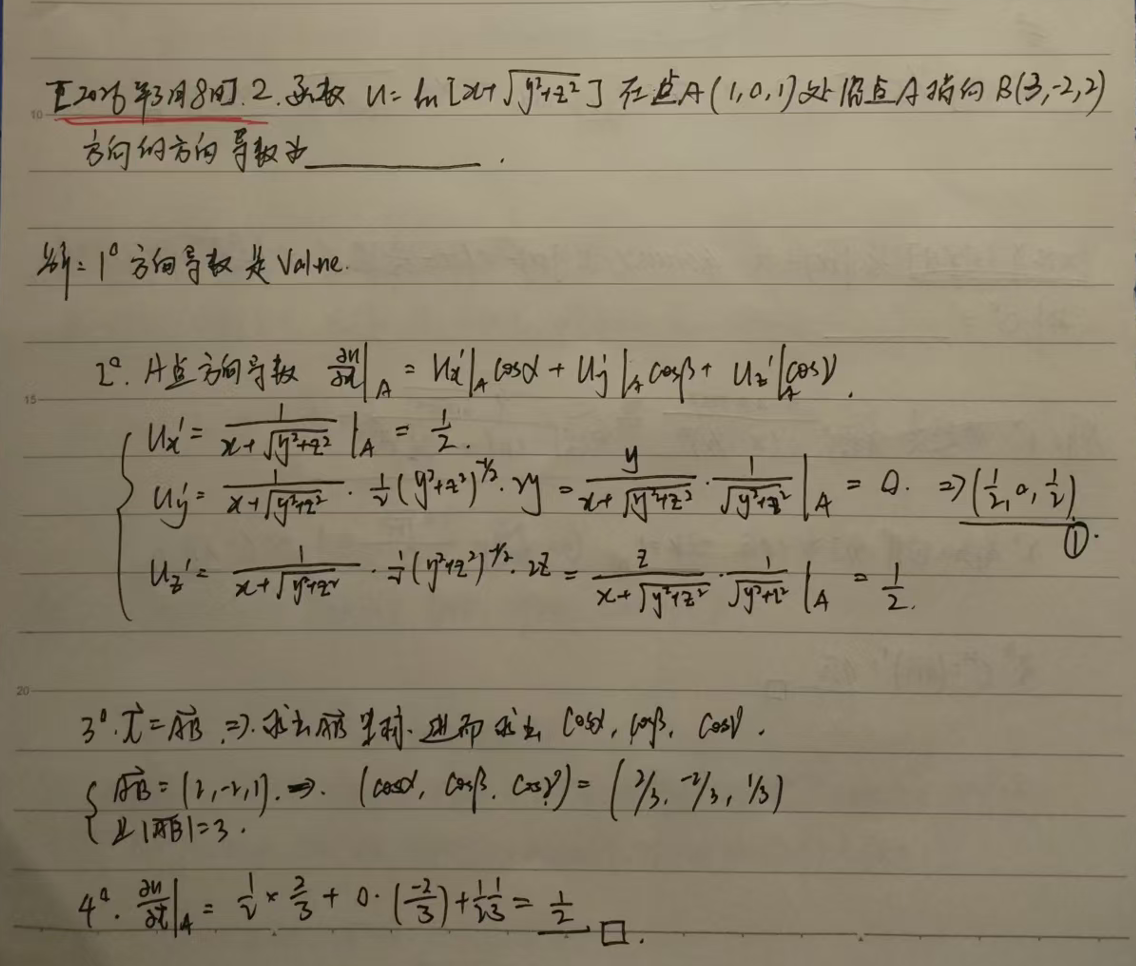 【2026年3月8日】.2.函数 u=ln[x+√(y²+z²)] 在点A(1,0,1)处沿点A指向B(3,-2,2)
方向的方向导数为________.
解: 1° 方向导数是Value.
2°. A点方向导数 ∂u/∂l|_A = u_x'|_A cosα + u_y'|_A cosβ + u_z'|_A cosγ.
u_x' = 1/(x+√(y²+z²)) |_A = 1/2.
u_y' = 1/(x+√(y²+z²)) · 1/2 (y²+z²)^(-1/2) · 2y = y/(x+√(y²+z²)) · 1/√(y²+z²) |_A = 0. ⇒ (1/2, 0, 1/2) ①.
u_z' = 1/(x+√(y²+z²)) · 1/2 (y²+z²)^(-1/2) · 2z = z/(x+√(y²+z²)) · 1/√(y²+z²) |_A = 1/2.
3°. l⃗ = AB⃗ ⇒. 求出AB⃗坐标. 进而求出 cosα, cosβ, cosγ.
AB⃗ = (2,-2,1). ⇒. (cosα, cosβ, cosγ) = (2/3, -2/3, 1/3)
且|AB⃗|=3.
4°. ∂u/∂l|_A = 1/2 × 2/3 + 0·(-2/3) + 1/2 · 1/3 = 1/2 □.
10
15
20